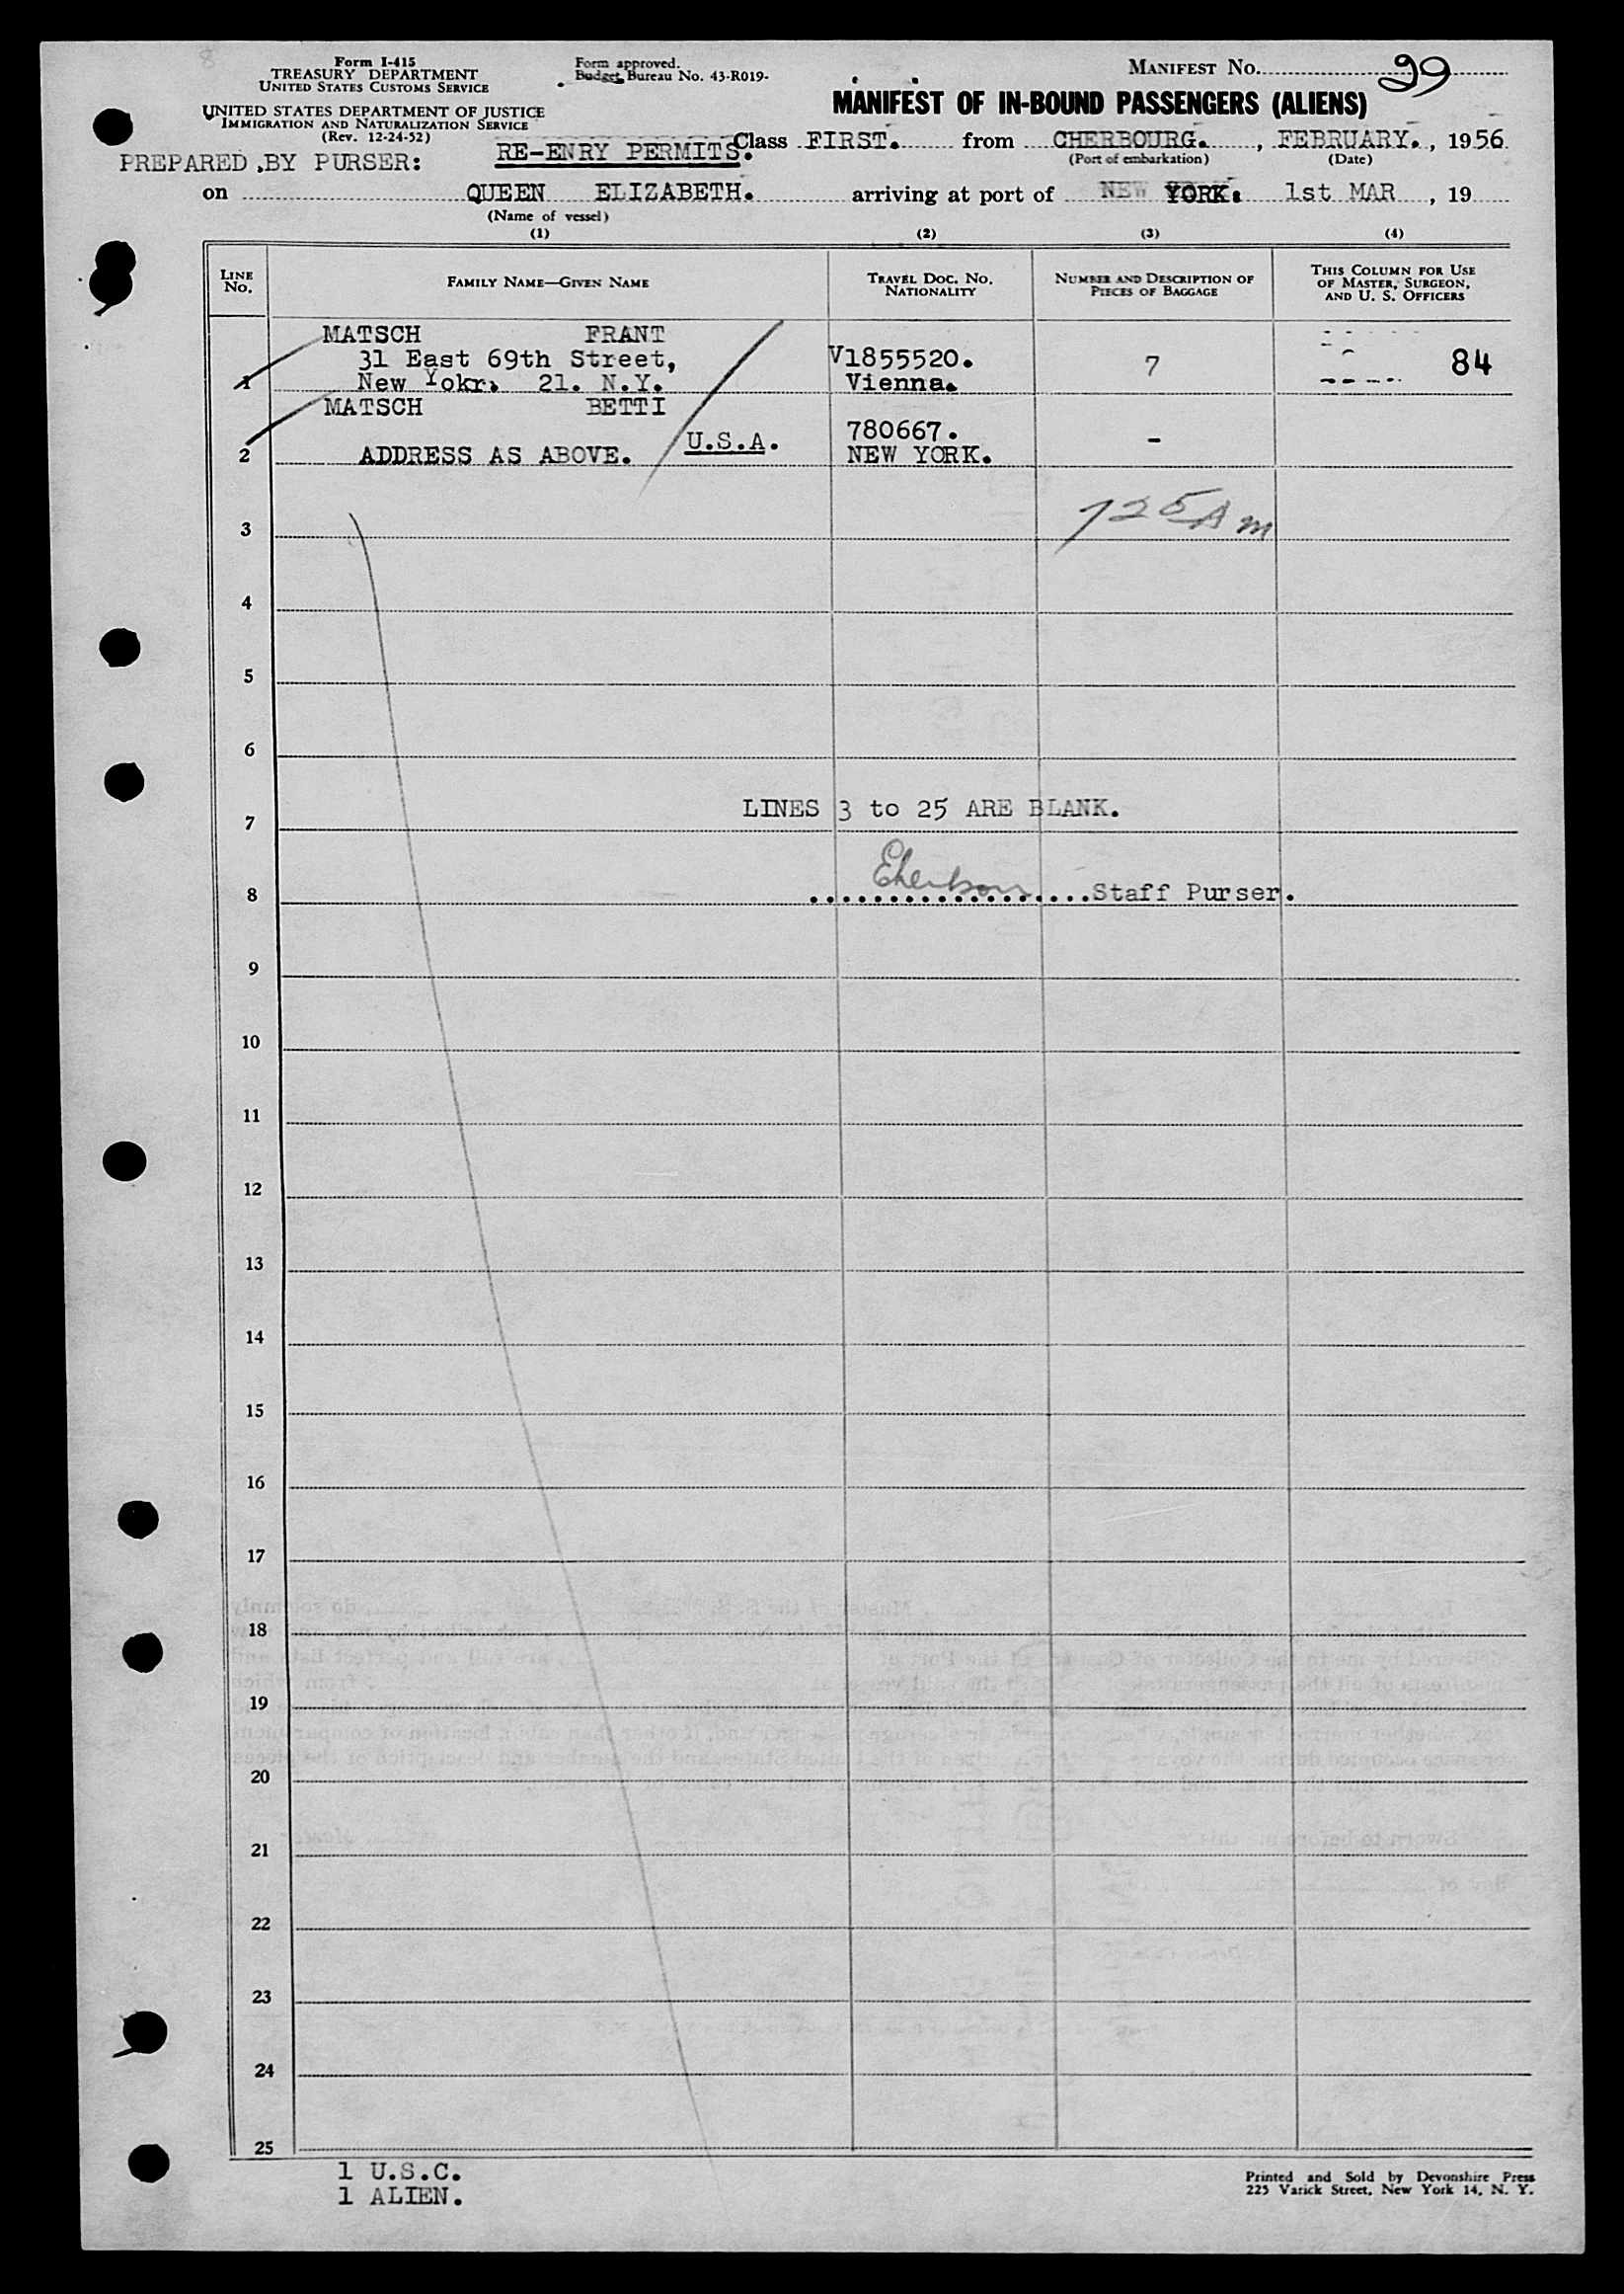 8
Form I-415
TREASURY DEPARTMENT
UNITED STATES CUSTOMS SERVICE
UNITED STATES DEPARTMENT OF JUSTICE
IMMIGRATION AND NATURALIZATION SERVICE
(Rev. 12-24-52)
Form approved.
Budget Bureau No. 43-R019-
MANIFEST NO. 29
MANIFEST OF IN-BOUND PASSENGERS (ALIENS)
PREPARED BY PURSER: RE-ENRY PERMITS. Class FIRST. from CHERBOURG. , FEBRUARY. , 1956
(Port of embarkation) (Date)
on QUEEN ELIZABETH. arriving at port of NEW YORK. 1st MAR , 19
(Name of vessel)
(1) (2) (3) (4)
LINE No.
FAMILY NAME—GIVEN NAME
TRAVEL DOC. NO. NATIONALITY
NUMBER AND DESCRIPTION OF PIECES OF BAGGAGE
THIS COLUMN FOR USE OF MASTER, SURGEON, AND U. S. OFFICERS
MATSCH FRANT
31 East 69th Street, V1855520. 7 84
1 New Yokr. 21. N.Y. Vienna.
MATSCH BETTI
U.S.A. 780667. -
2 ADDRESS AS ABOVE. NEW YORK.
3 725 Am
4
5
6
LINES 3 to 25 ARE BLANK.
7
8 ....Staff Purser.
9
10
11
12
13
14
15
16
17
18
19
20
21
22
23
24
25
1 U.S.C.
1 ALIEN.
Printed and Sold by Devonshire Press
225 Varick Street, New York 14, N. Y.